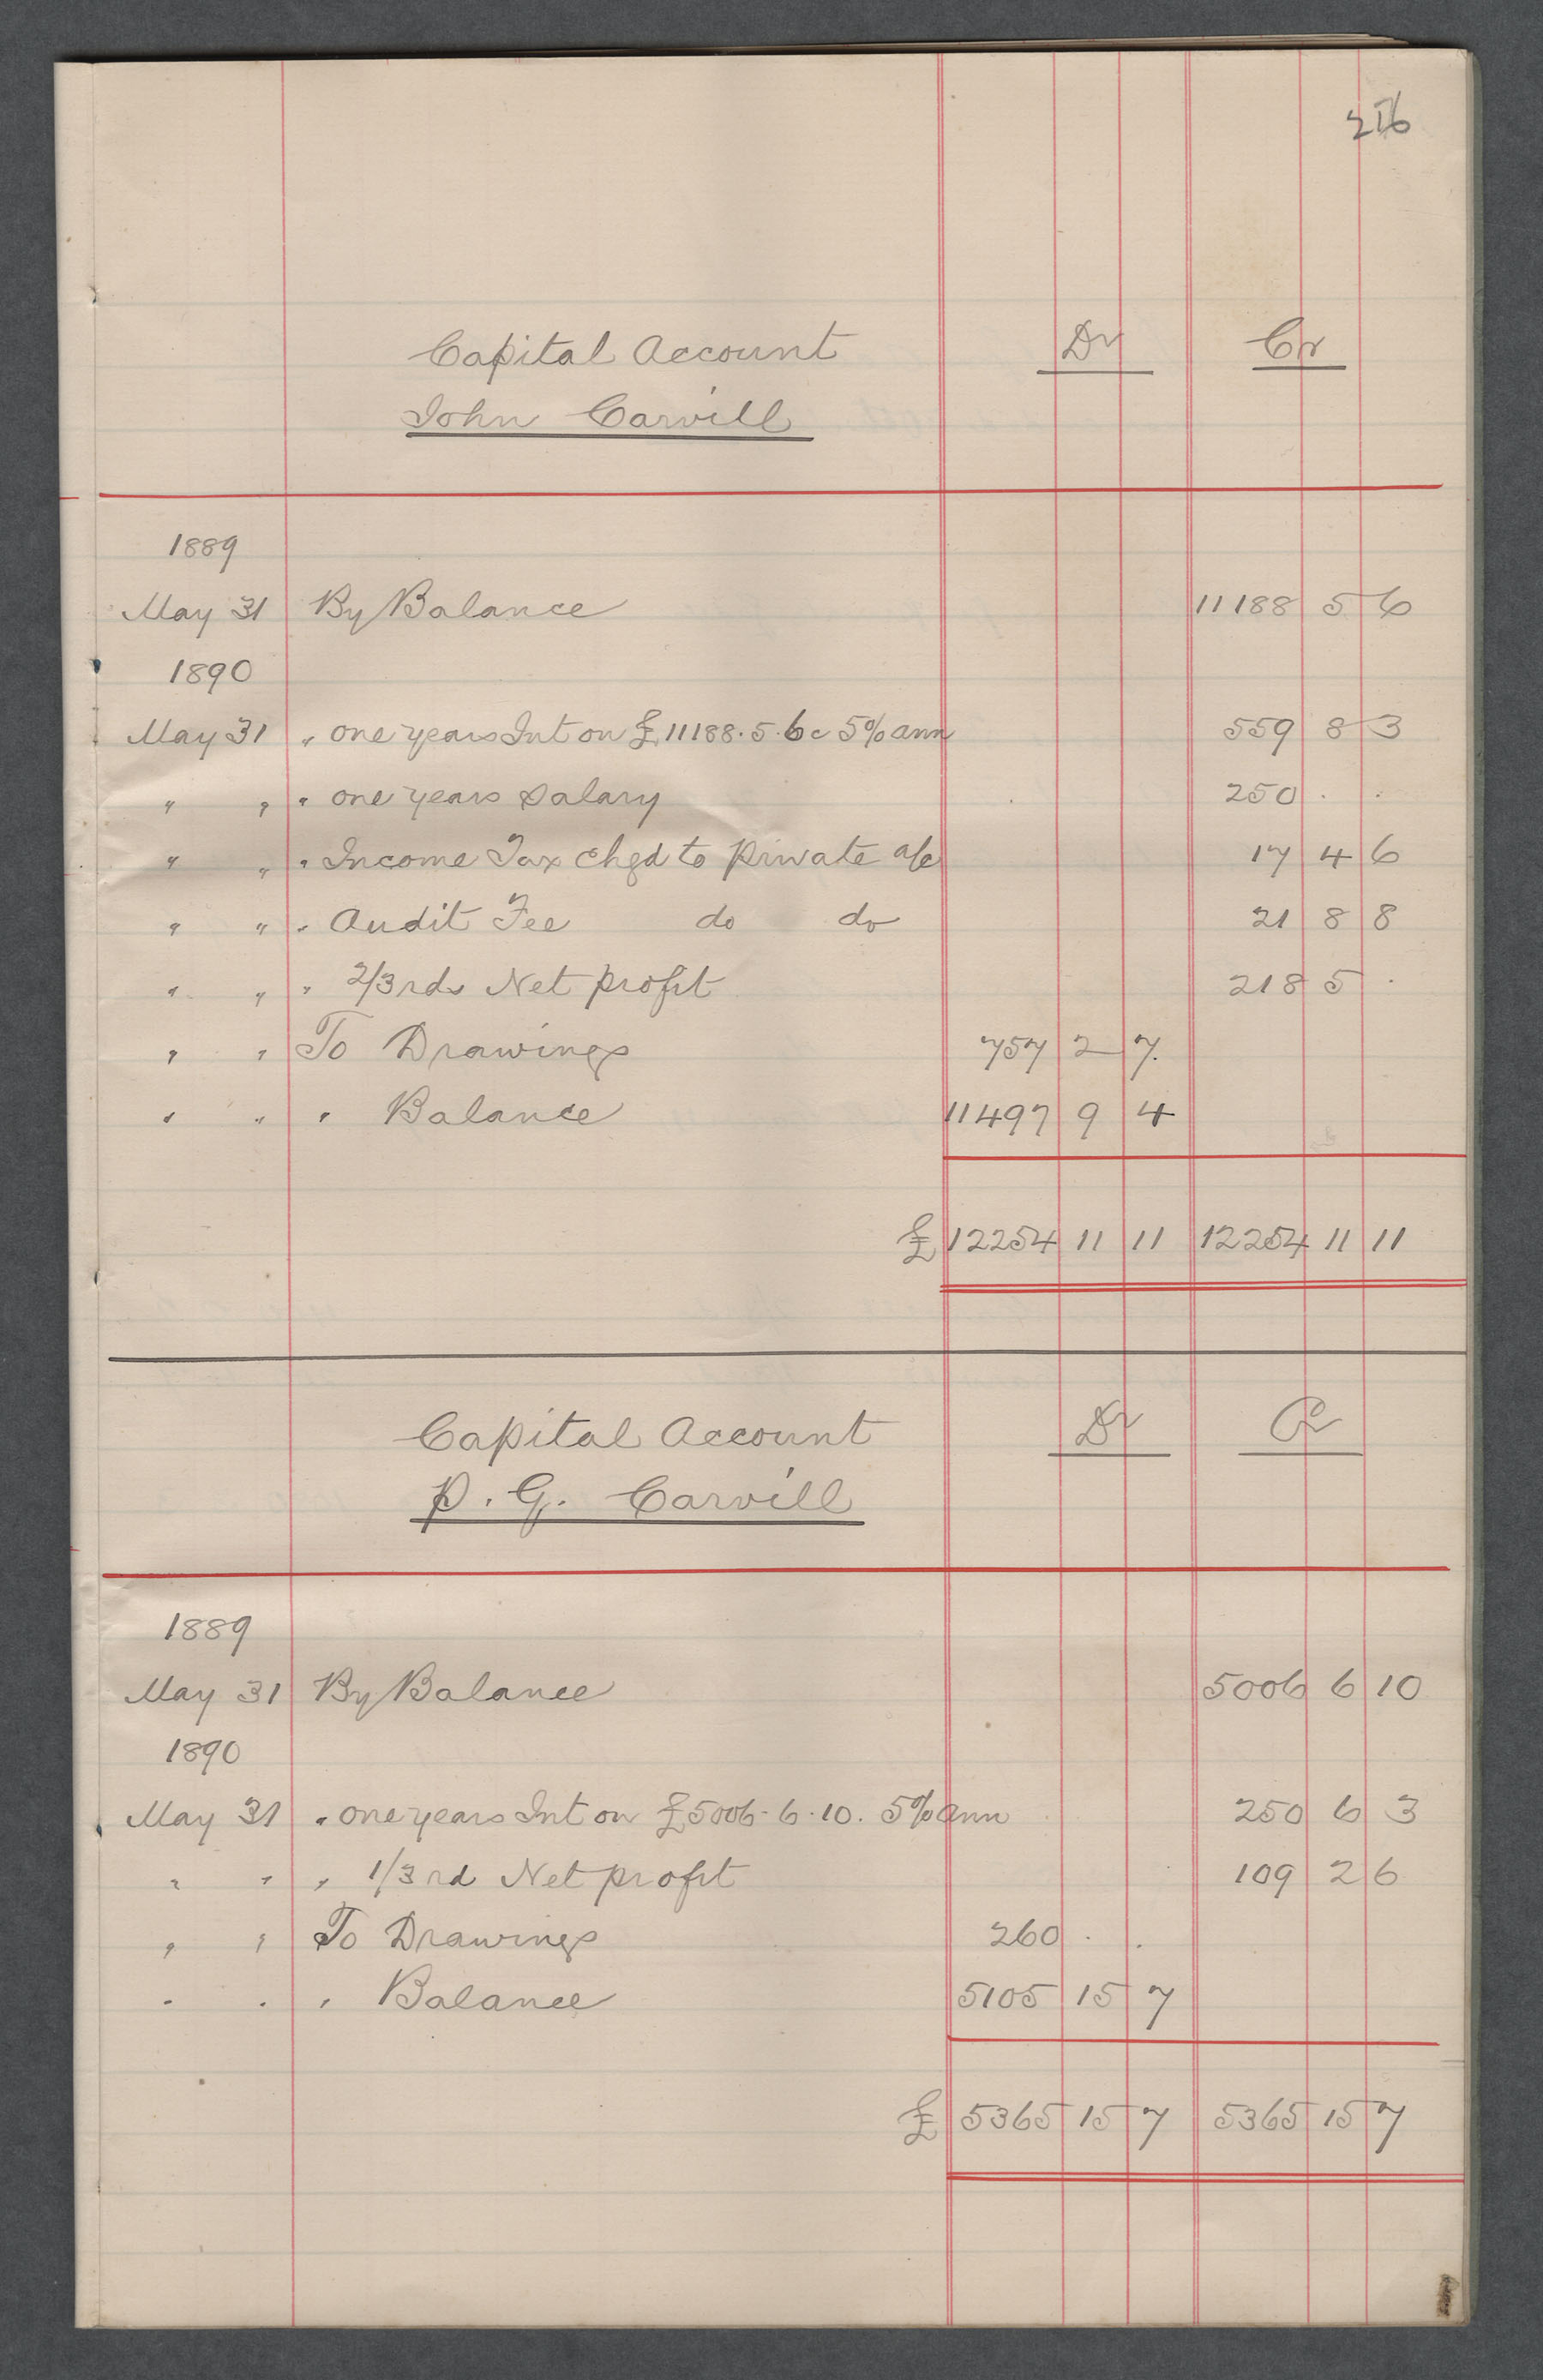 216
Capital Account Dr Cr
John Carvill
1889
May 31 By Balance 11188 5 6
1890
May 31 " one years Int on £11188.5.6 c 5% ann 559 8 3
" " " one years Salary 250 . .
" " " Income Tax chgd to private a/c 17 4 6
" " " Audit Fee do do 21 8 8
" " " 2/3rds Net profit 218 5 .
" " To Drawings 757 2 7.
" " " Balance 11497 9 4
£ 12254 11 11 12254 11 11
Capital Account Dr Cr
P. G. Carvill
1889
May 31 By Balance 5006 6 10
1890
May 31 " one years Int on £5006.6.10. 5% ann 250 6 3
" " " 1/3rd Net profit 109 2 6
" " To Drawings 260 . .
" " " Balance 5105 15 7
£ 5365 15 7 5365 15 7